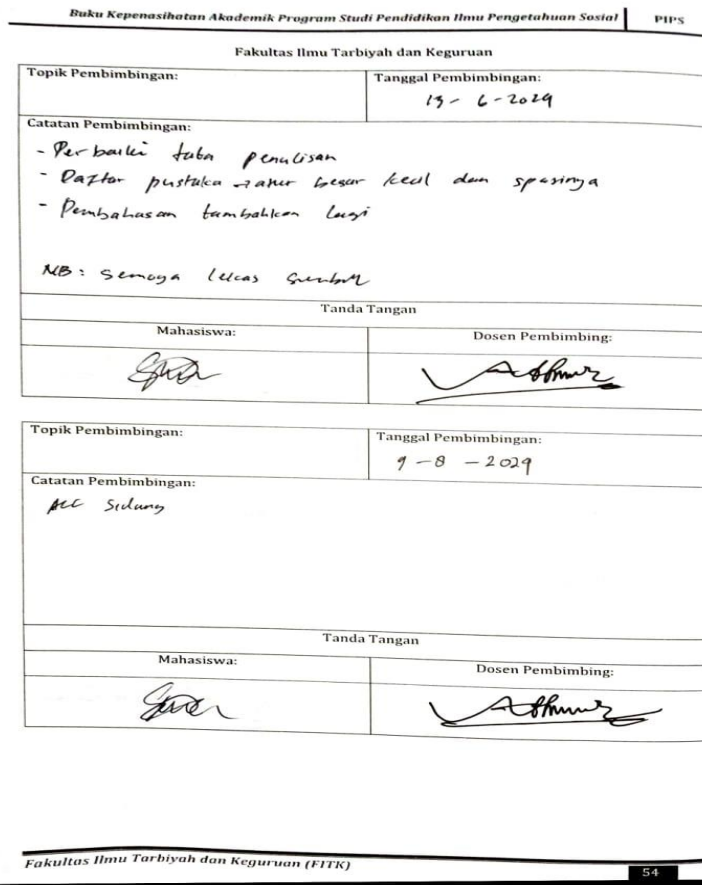 Buku Kepenasihatan Akademik Program Studi Pendidikan Ilmu Pengetahuan Sosial PIPS
Fakultas Ilmu Tarbiyah dan Keguruan
Topik Pembimbingan: Tanggal Pembimbingan:
13 - 6 - 2024
Catatan Pembimbingan:
- Perbaiki tata penulisan
- Daftar pustaka → atur besar kecil dan spasinya
- Pembahasan tambahkan lagi
NB: Semoga lekas
Tanda Tangan
Mahasiswa: Dosen Pembimbing:
Topik Pembimbingan: Tanggal Pembimbingan:
9 - 8 - 2024
Catatan Pembimbingan:
ACC Sidang
Tanda Tangan
Mahasiswa: Dosen Pembimbing:
Fakultas Ilmu Tarbiyah dan Keguruan (FITK) 54